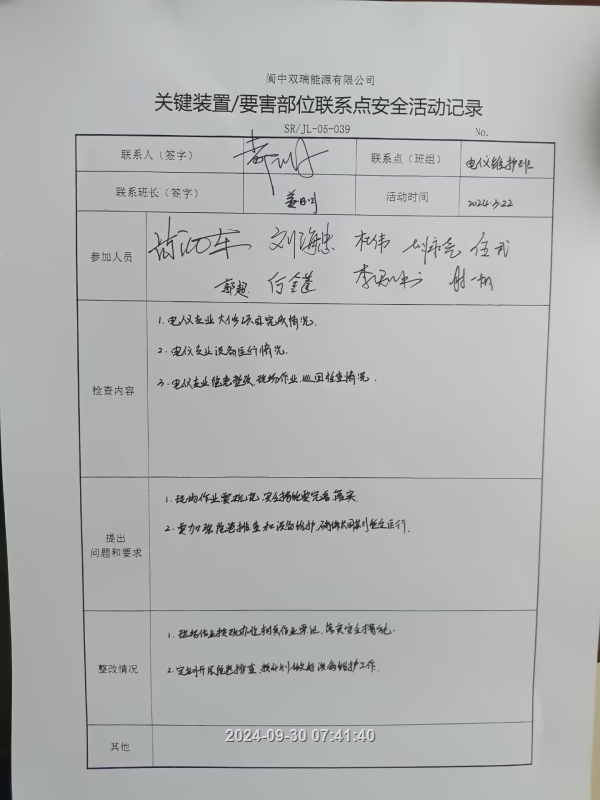 阆中双瑞能源有限公司
关键装置/要害部位联系点安全活动记录
SR/JL-05-039 No.
联系人（签字） 联系点（班组） 电仪维护班
联系班长（签字） 活动时间 2024.9.22
参加人员 刘海忠 杜伟 任武
郭超
检查内容
1. 电仪专业大修项目完成情况.
2. 电仪专业设备运行情况.
3. 电仪专业隐患整改、现场作业、巡回检查情况.
提出
问题和要求
1. 现场作业要规范，安全措施要完善落实.
2. 要加强隐患排查和设备维护，确保长周期安全运行.
整改情况
1. 现场作业按规办理相关作业票证、落实安全措施.
2. 定期开展隐患排查，按计划做好设备维护工作.
其他
2024-09-30 07:41:40